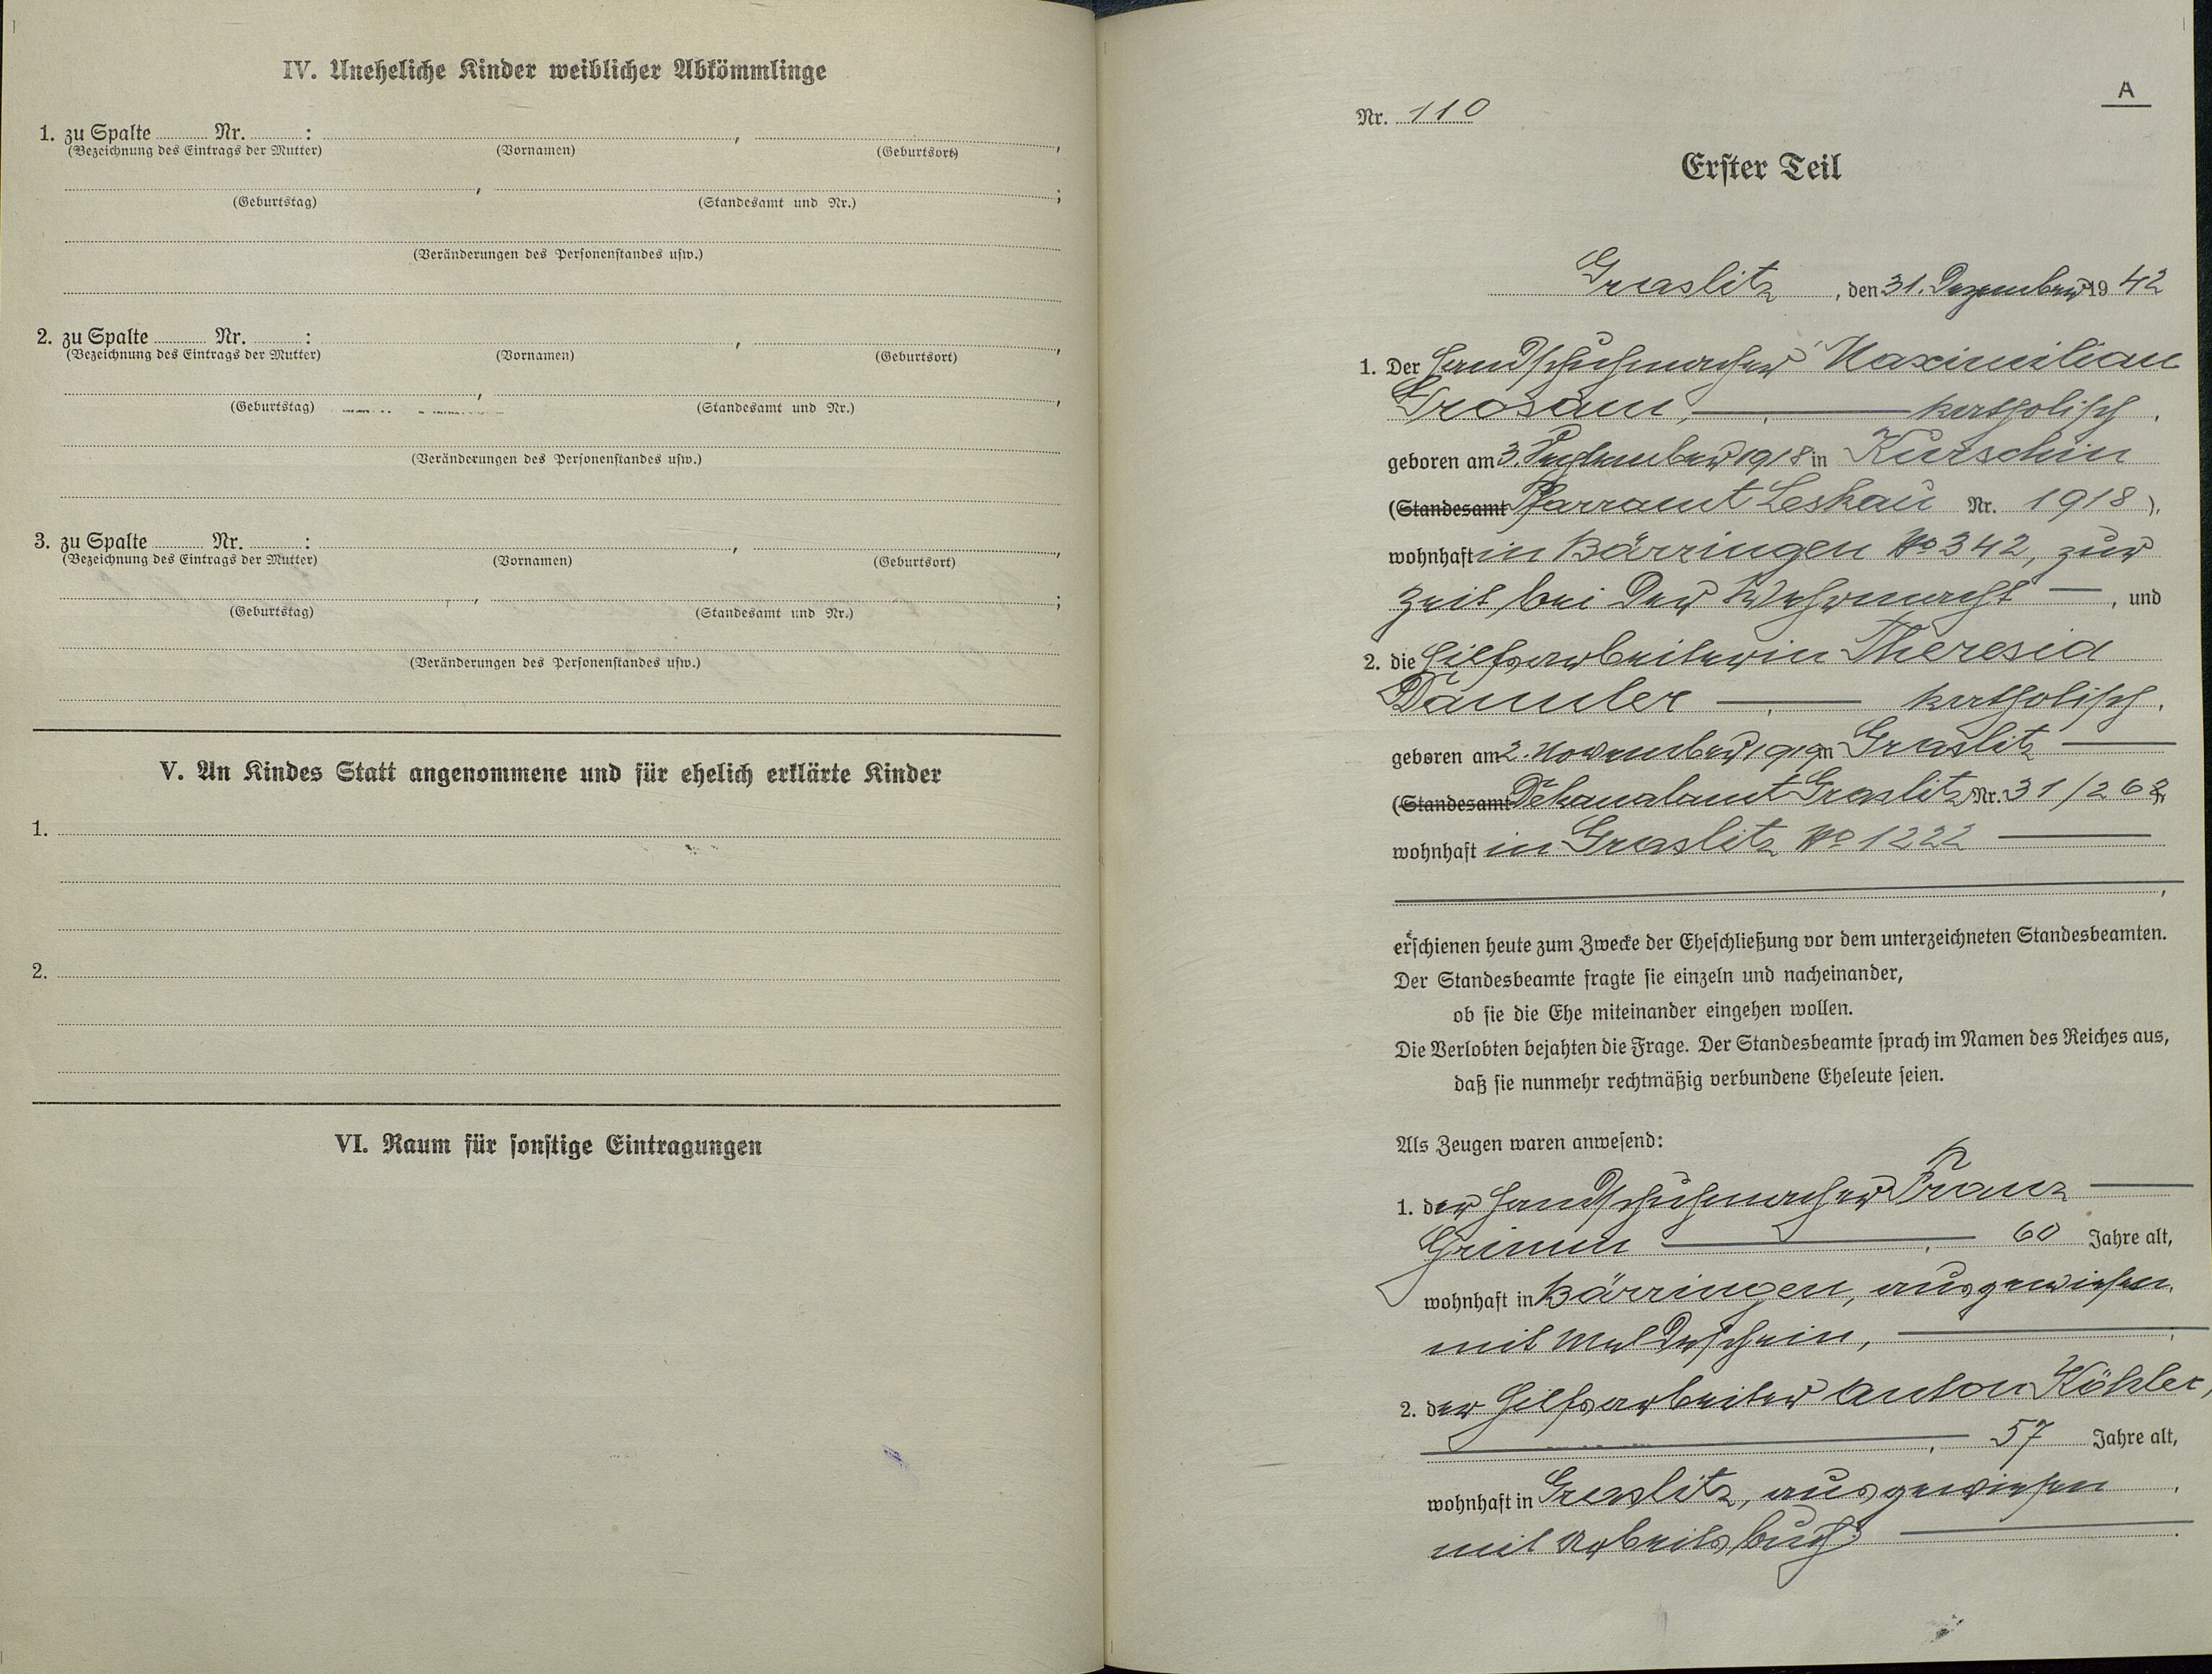 IV. Uneheliche Kinder weiblicher Abkömmlinge
1. zu Spalte ........ Nr. ........ :
(Bezeichnung des Eintrags der Mutter) (Vornamen) , (Geburtsort) ,
(Geburtstag) , (Standesamt und Nr.) ;
(Veränderungen des Personenstandes usw.)
2. zu Spalte ........ Nr. ........ :
(Bezeichnung des Eintrags der Mutter) (Vornamen) , (Geburtsort) ,
(Geburtstag) , (Standesamt und Nr.) ,
(Veränderungen des Personenstandes usw.)
3. zu Spalte ........ Nr. ........ :
(Bezeichnung des Eintrags der Mutter) (Vornamen) , (Geburtsort) ,
(Geburtstag) , (Standesamt und Nr.) ;
(Veränderungen des Personenstandes usw.)
V. An Kindes Statt angenommene und für ehelich erklärte Kinder
1.
2.
VI. Raum für sonstige Eintragungen
A
Nr. 110
Erster Teil
Graslitz, den 31. Dezember 1942
1. Der Handschuhmacher Maximilian
Grosam, katholisch,
geboren am 3. September 1918 in Kurschin
(Standesamt Pfarramt Leskau Nr. 1918),
wohnhaft in Bärringen No 342, zur
Zeit bei der Wehrmacht —, und
2. die Hilfsarbeiterin Theresia
Dämler — katholisch,
geboren am 2. November 1919 in Graslitz —
(Standesamt Dekanalamt Graslitz Nr. 31/262
wohnhaft in Graslitz No 1222 —
erschienen heute zum Zwecke der Eheschließung vor dem unterzeichneten Standesbeamten.
Der Standesbeamte fragte sie einzeln und nacheinander,
ob sie die Ehe miteinander eingehen wollen.
Die Verlobten bejahten die Frage. Der Standesbeamte sprach im Namen des Reiches aus,
daß sie nunmehr rechtmäßig verbundene Eheleute seien.
Als Zeugen waren anwesend:
1. der Handschuhmacher Franz —
Grimm — , 60 Jahre alt,
wohnhaft in Bärringen, ausgewiesen
mit Meldeschein, —
2. der Hilfsarbeiter Anton Köhler,
— , 57 Jahre alt,
wohnhaft in Graslitz, ausgewiesen
mit Arbeitsbuch —